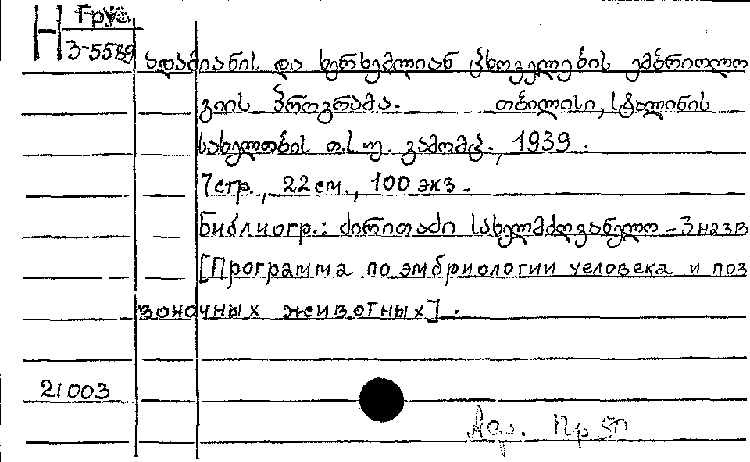 Н Груз
3-5589
ადამიანის და ხერხემლიან ცხოველების ემბრიოლო
გიის პროგრამა. თბილისი, სტალინის
სახელობის თ.ს.უ. გამომც., 1939.
7 стр., 22 см., 100 экз.
Библиогр.: ძირითადი სახელმძღვანელო - 3 назв
[Программа по эмбриологии человека и поз
воночных животных].
21003